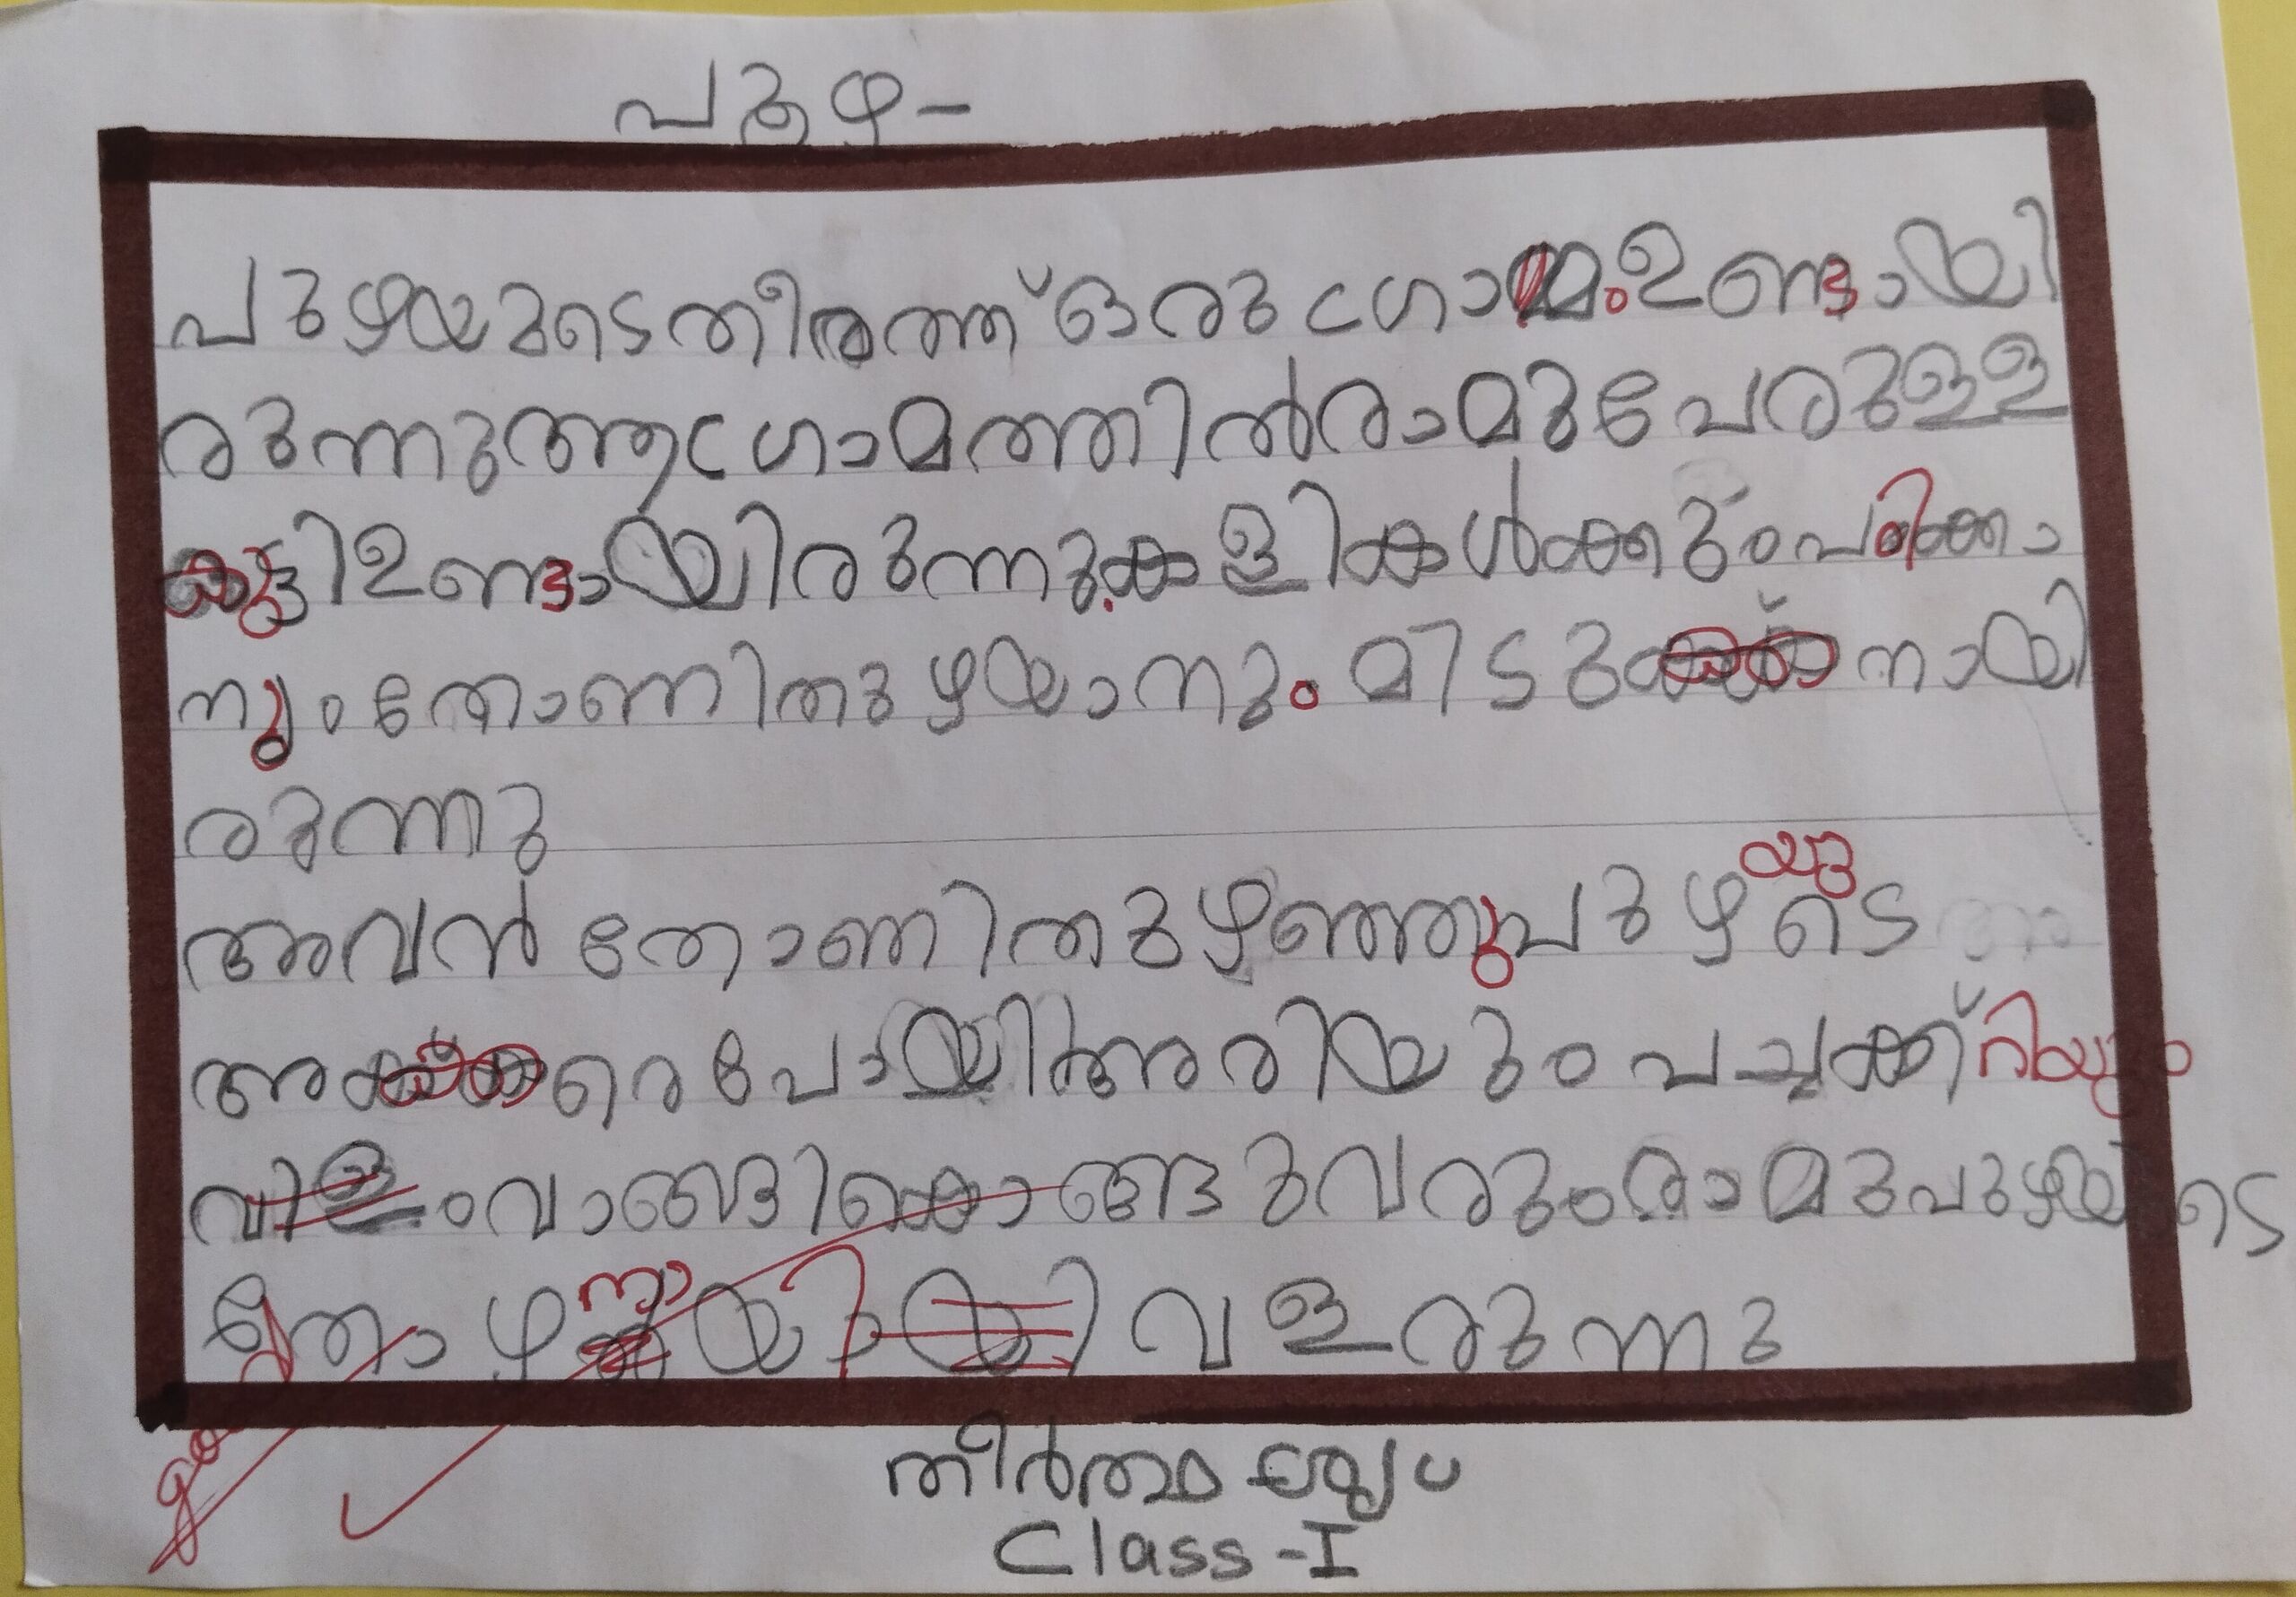 പുഴ-
പുഴയുടെ തീരത്ത് ഒരു ഗ്രാമം ഉണ്ടായി
രുന്നു ആ ഗ്രാമത്തിൽ രാമു പേരുള്ള
കുട്ടി ഉണ്ടായിരുന്നു. കളികൾക്കും പഠിക്കാ
നും തോണി തുഴയാനും മിടുക്കനായി
രുന്നു
അവൻ തോണി തുഴഞ്ഞു പുഴയുടെ
അക്കരെ പോയി അരിയും പച്ചക്ക്റിയും
വാങ്ങി കൊങ്ങു വരും രാമു പുഴയുടെ
തോഴനായി വളരുന്നു
good
തീർത്ഥ
Class-I